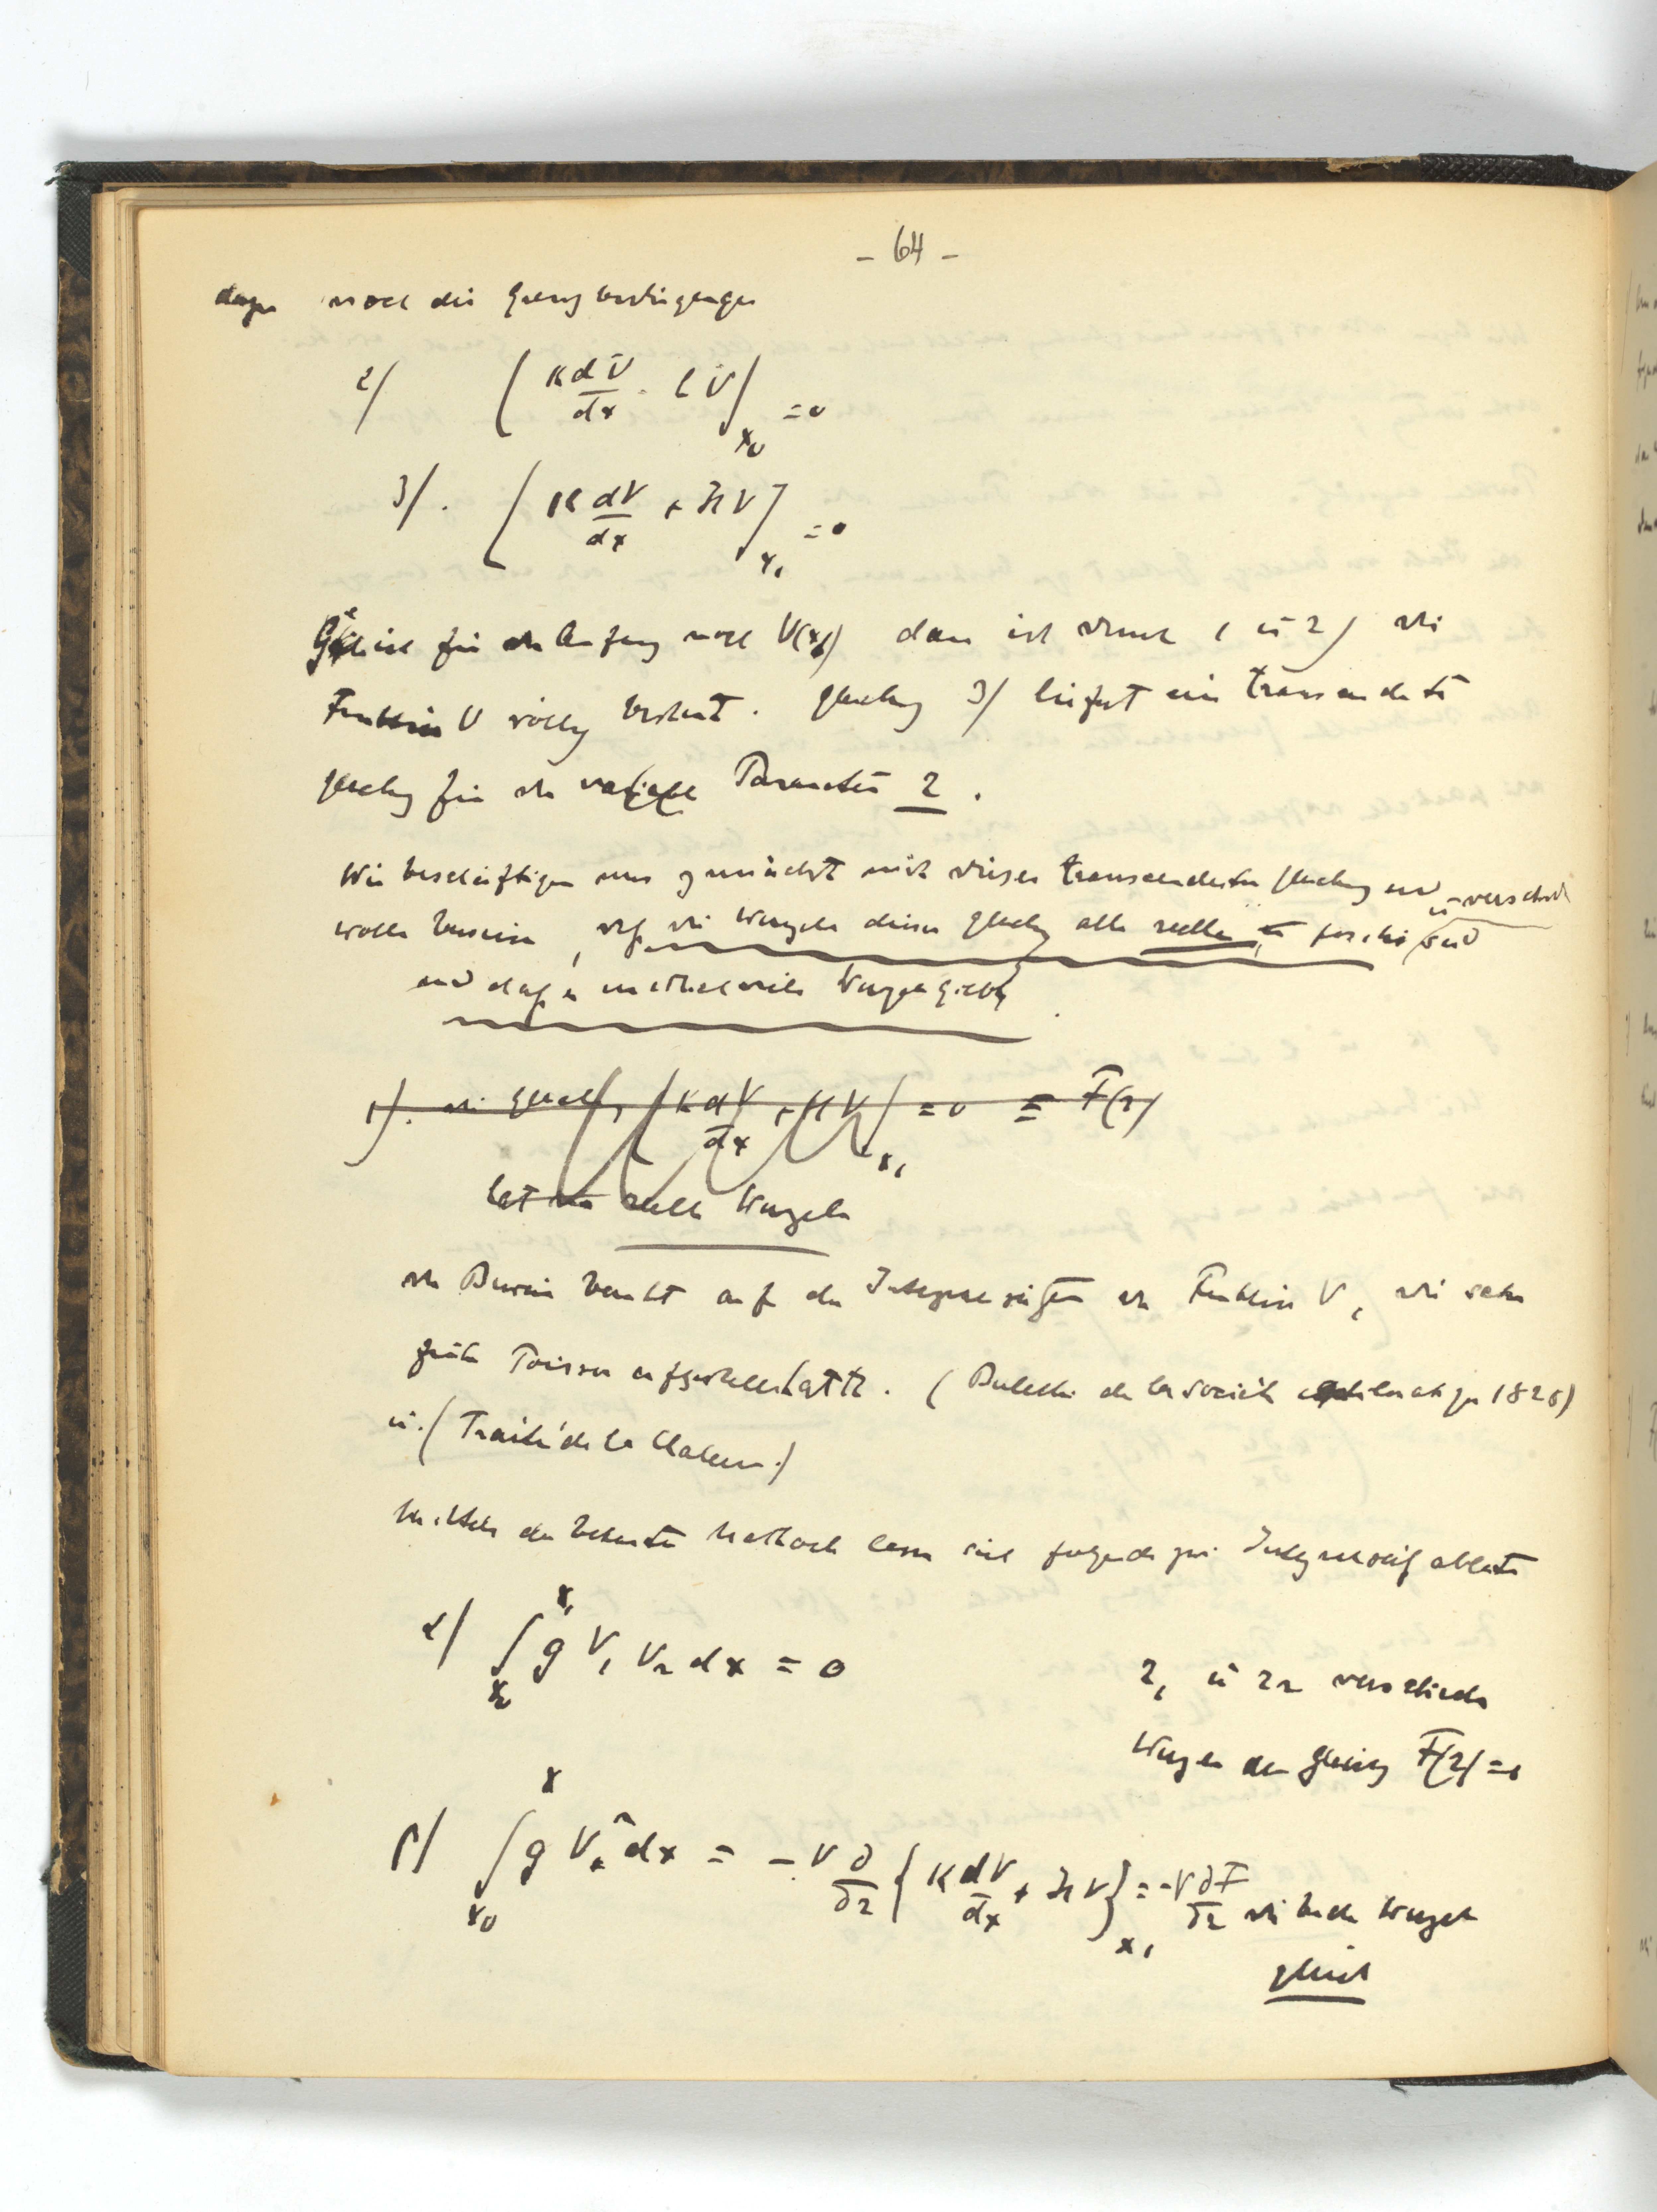 - 64 -
dazu noch die Grenzbedingungen
2) ( K dV/dx - l V )_{x_0} = 0
3). ( K dV/dx + H V )_{x_1} = 0
für den Anfang noch V(x_0) dann ist durch 1 u 2) die
Funktion V völlig bestimt. Gleichung 3) liefert eine transcendente
Gleichung für den variable Parameter r.
Wir beschäftigen uns zunächst mit dieser transcendenten Gleichung und
wollen beweisen, daß die Wurzeln dieser Gleichung alle reelle u positiv u verschieden sind
und daß es unendlich viele Wurzeln giebt.
1). die Gleichung ( K dV/dx + H V )_{x_1} = 0 = F(r)
hat reelle Wurzeln
der Beweis beruht auf den Integraleigen der Funktion V, die schon
früher Poisson aufgestellt hatte. (Bulletin de la Société 1826)
u. (Traité de la Chaleur.)
Mittels der bekannten Methode lassen sich folgende zwei ableiten
α) ∫_{x_0}^{x_1} g V_1 V_2 dx = 0
r_1 u r_2 verschiedene
Wurzeln der Gleichung F(r) = 0
β) ∫_{x_0}^{x} g V^2 dx = - V ∂/∂r { K dV/dx + H V }_{x_1} = - V ∂F/∂r die beiden Wurzeln
gleich